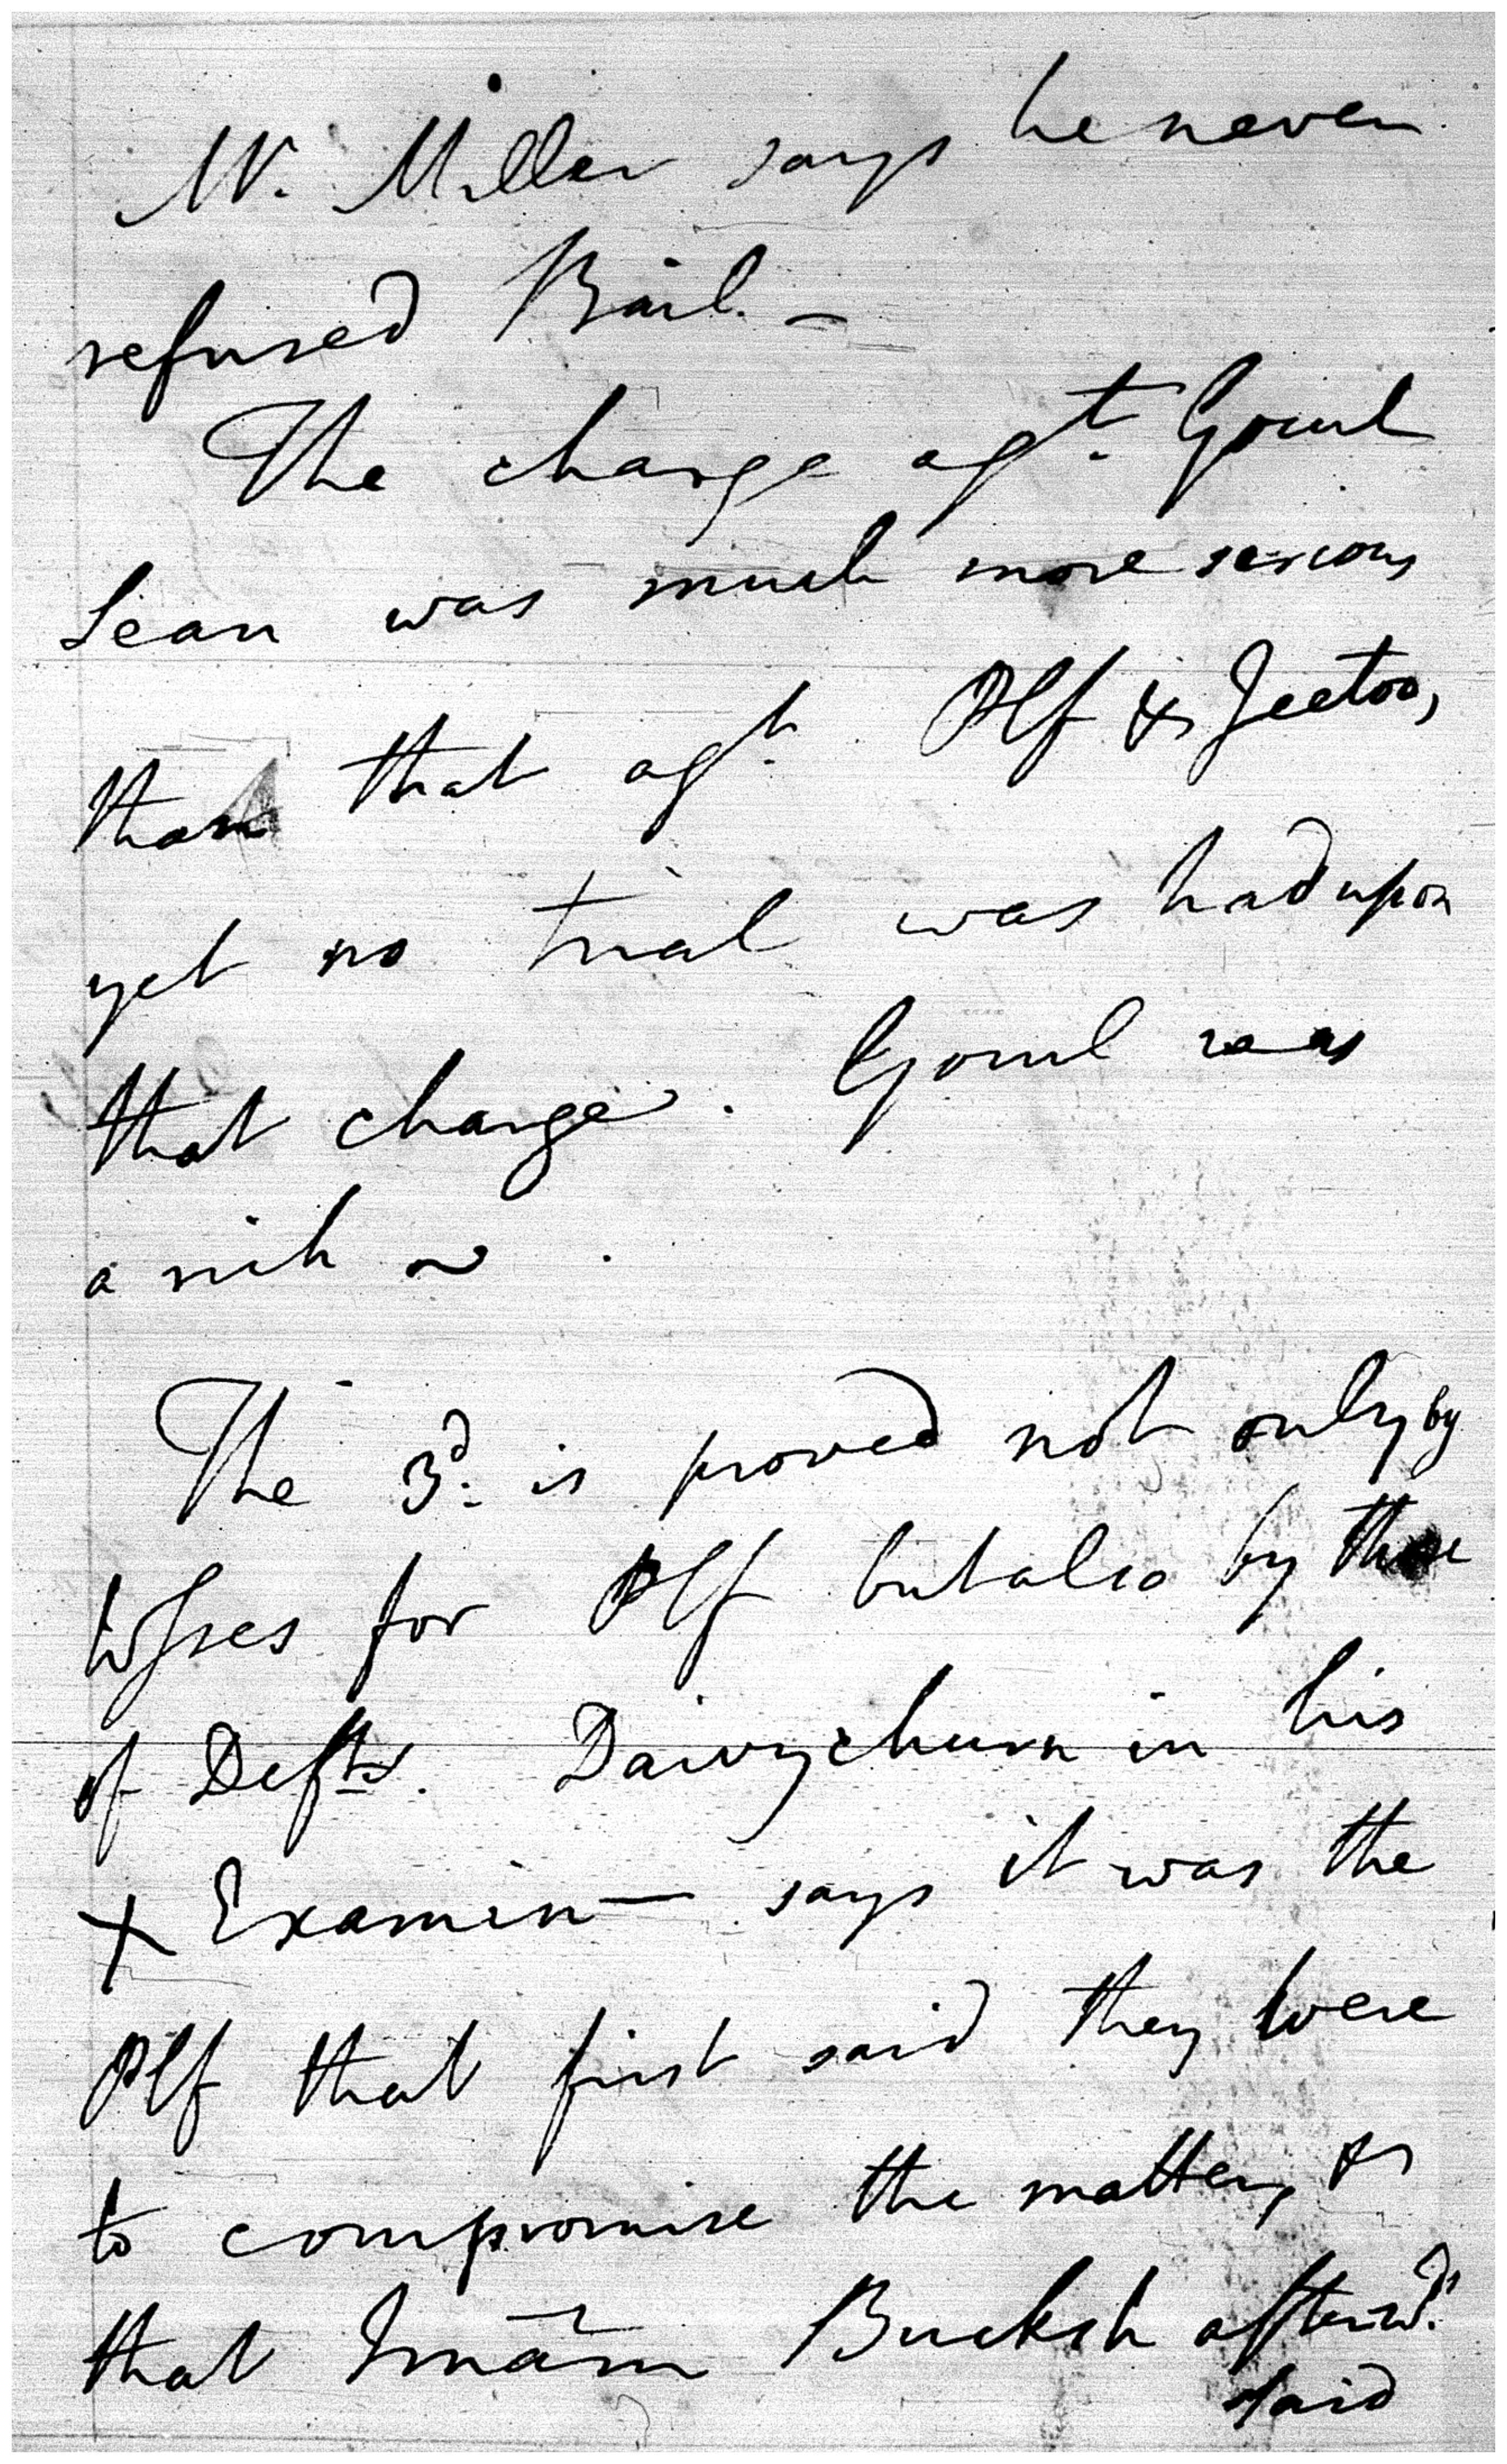 Mr. Miller says he never
refused Bail. —
The charge agt. Gocul
Sean was much more serious
than that agt. Plf & Jeetoo,
yet no trial was had upon
that charge. Gocul was
a rich ~ .
The 3d. is proved not only by
Wsses for Plf but also by those
of Defts. Daivychurn in his
X Examin— says it was the
Plf that first said they were
to compromise the matter, &
that Imām Buksh afterwds.
said